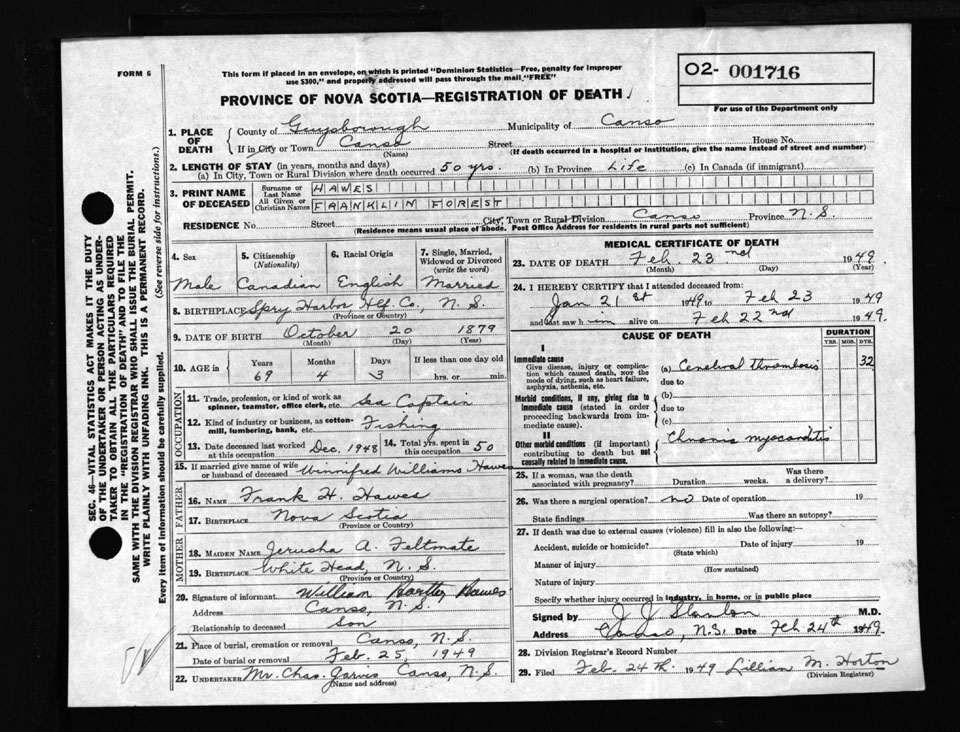 FORM 6
This form if placed in an envelope, on which is printed "Dominion Statistics—Free, penalty for improper
use $300," and properly addressed will pass through the mail "FREE"
O2- 001716
For use of the Department only
PROVINCE OF NOVA SCOTIA—REGISTRATION OF DEATH
1. PLACE OF DEATH
County of Guysborough Municipality of Canso
If in City or Town Canso Street House No.
(Name) (If death occurred in a hospital or institution, give the name instead of street and number)
2. LENGTH OF STAY (in years, months and days)
(a) In City, Town or Rural Division where death occurred 50 yrs. (b) In Province Life (c) In Canada (if immigrant)
3. PRINT NAME OF DECEASED
Surname or Last Name HAWES
All Given or Christian Names FRANKLIN FOREST
RESIDENCE No. Street City, Town or Rural Division Canso Province N.S.
(Residence means usual place of abode. Post Office Address for residents in rural parts not sufficient)
4. Sex 5. Citizenship (Nationality) 6. Racial Origin 7. Single, Married, Widowed or Divorced (write the word)
Male Canadian English Married
8. BIRTHPLACE Spry Harbor Hlf. Co., N.S.
(Province or Country)
9. DATE OF BIRTH October 20 1879
(Month) (Day) (Year)
10. AGE in Years Months Days If less than one day old
69 4 3 hrs. or min.
OCCUPATION
11. Trade, profession, or kind of work as
spinner, teamster, office clerk, etc. Sea Captain
12. Kind of industry or business, as cotton-
mill, lumbering, bank, etc. Fishing
13. Date deceased last worked at this occupation Dec. 1948 14. Total yrs. spent in this occupation 50
15. If married give name of wife
or husband of deceased Winnifred Williams Hawes
FATHER
16. NAME Frank H. Hawes
17. BIRTHPLACE Nova Scotia
(Province or Country)
MOTHER
18. MAIDEN NAME Jerusha A. Feltmate
19. BIRTHPLACE White Head, N.S.
(Province or Country)
20. Signature of informant William Hawes
Address Canso, N.S.
Relationship to deceased Son
21. Place of burial, cremation or removal Canso, N.S.
Date of burial or removal Feb. 25, 1949
22. UNDERTAKER Mr. Chas. Jarvis Canso, N.S.
(Name and address)
MEDICAL CERTIFICATE OF DEATH
23. DATE OF DEATH Feb. 23 nd 1949
(Month) (Day) (Year)
24. I HEREBY CERTIFY that I attended deceased from:
Jan 21 st 1949 to Feb 23 1949
and last saw him alive on Feb 22 nd 1949.
CAUSE OF DEATH DURATION
YRS. MOS. DYS.
I
Immediate cause
Give disease, injury or complication which caused death, not the mode of dying, such as heart failure, asphyxia, asthenia, etc.
(a) Cerebral thrombosis 32
due to
Morbid conditions, if any, giving rise to immediate cause (stated in order proceeding backwards from immediate cause).
(b)
due to
(c)
II
Other morbid conditions (if important) contributing to death but not causally related to immediate cause.
Chronic myocarditis
25. If a woman, was the death associated with pregnancy? Duration weeks. Was there a delivery?
26. Was there a surgical operation? no Date of operation 19
State findings Was there an autopsy?
27. If death was due to external causes (violence) fill in also the following:—
Accident, suicide or homicide? Date of injury 19
(State which)
Manner of injury
(How sustained)
Nature of injury
Specify whether injury occurred in industry, in home, or in public place
Signed by J. J. Stanton M.D.
Address Canso, N.S. Date Feb 24th 1949
28. Division Registrar's Record Number
29. Filed Feb. 24th. 1949 Lillian M. Horton
(Division Registrar)
SEC. 46—VITAL STATISTICS ACT MAKES IT THE DUTY
OF THE UNDERTAKER OR PERSON ACTING AS UNDER-
TAKER TO OBTAIN ALL THE PARTICULARS REQUIRED
IN THE "REGISTRATION OF DEATH" AND TO FILE THE
SAME WITH THE DIVISION REGISTRAR WHO SHALL ISSUE THE BURIAL PERMIT.
WRITE PLAINLY WITH UNFADING INK. THIS IS A PERMANENT RECORD.
Every item of information should be carefully supplied. (See reverse side for instructions.)